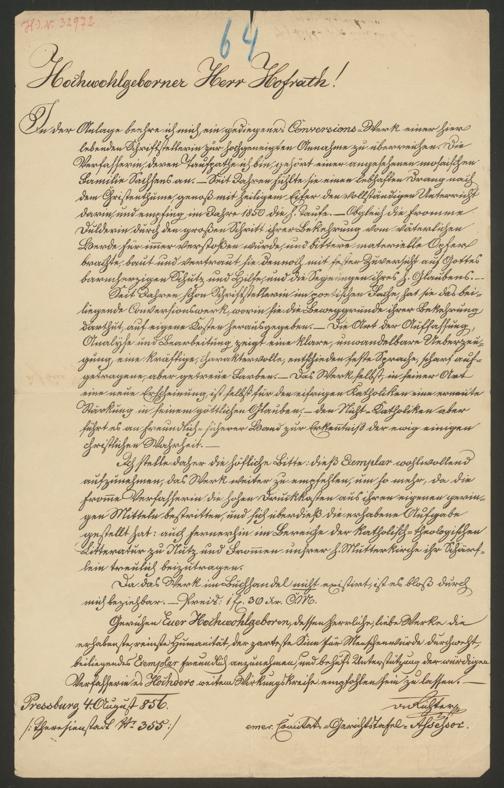 H.I.N. 32972
64
Hochwohlgeborner Herr Hofrath!
In der Anlage beehre ich mich, ein gediegenes Conversions-Werk einer hier
lebenden Schriftstellerin zur hochgeneigten Annahme zu überreichen. Die
Verfasserin, deren Taufpathe ich bin, gehört einer angesehenen mosaischen
Familie Sachsens an. — Seit Jahren fühlte sie einen lebhaften Drang nach
dem Christenthume, genoß mit heiligem Eifer den vollständigen Unterricht
darin, und empfing im Jahre 1850 die h. Taufe. — Obgleich die fromme
Dulderin durch den großen Schritt ihrer Bekehrung vom väterlichen
Herde für immer verstoßen wurde, und bittere materielle Opfer
brachte, baut und vertraut sie dennoch mit fester Zuversicht auf Gottes
barmherzigen Schutz und Hilfe, und die Segnungen ihres h. Glaubens. —
Seit Jahren schon Schriftstellerin im poetischen Fache, hat sie das bei-
liegende Conversionswerk, worin sie die Beweggründe ihrer Bekehrung
darthut, auf eigene Kosten herausgegeben. — Die Art der Auffassung,
Analyse und Bearbeitung zeigt eine klare, unwandelbare Ueberzeu-
gung, eine kräftige, charaktervolle, entschieden feste Sprache, scharf auf-
getragene, aber getreue Farben. — Das Werk selbst, in seiner Art
eine neue Erscheinung, ist selbst für den eifrigen Katholiken eine erneute
Stärkung in seinem göttlichen Glauben, — den Nicht-Katholiken aber
führt es an freundlich-sicherer Hand zur Erkenntniß der ewig einigen
christlichen Wahrheit. —
Ich stelle daher die höfliche Bitte: dieß Exemplar wohlwollend
aufzunehmen, das Werk weiter zu empfehlen, um so mehr, da die
fromme Verfasserin die hohen Druckkosten aus ihren eigenen gerin-
gen Mitteln bestritten, und sich überdieß die erhabene Aufgabe
gestellt hat: auch fernerhin im Bereiche der katholisch-theologischen
Litteratur zu Nutz und Frommen unserer h. Mutterkirche ihr Schärf-
lein treulich beizutragen.
Da das Werk im Buchhandel nicht existirt, ist es bloß durch
mich beziehbar. — Preis: 1 f. 30 xr. CM.
Geruhen Euer Hochwohlgeboren, dessen herrliche, liebe Werke die
erhabenste, reinste Humanität, der zarteste Sinn für Menschenwürde durchweht,
beiliegendes Exemplar freundl. anzunehmen, und behufs Unterstützung der würdigen
Verfasserin es Hochdero weitem Wirkungskreise empfohlen sein zu lassen. —
Pressburg 4 August 856.
/: Theresienstadt No 355 :/
emer. Comitats-Gerichtstafel-Assessor.